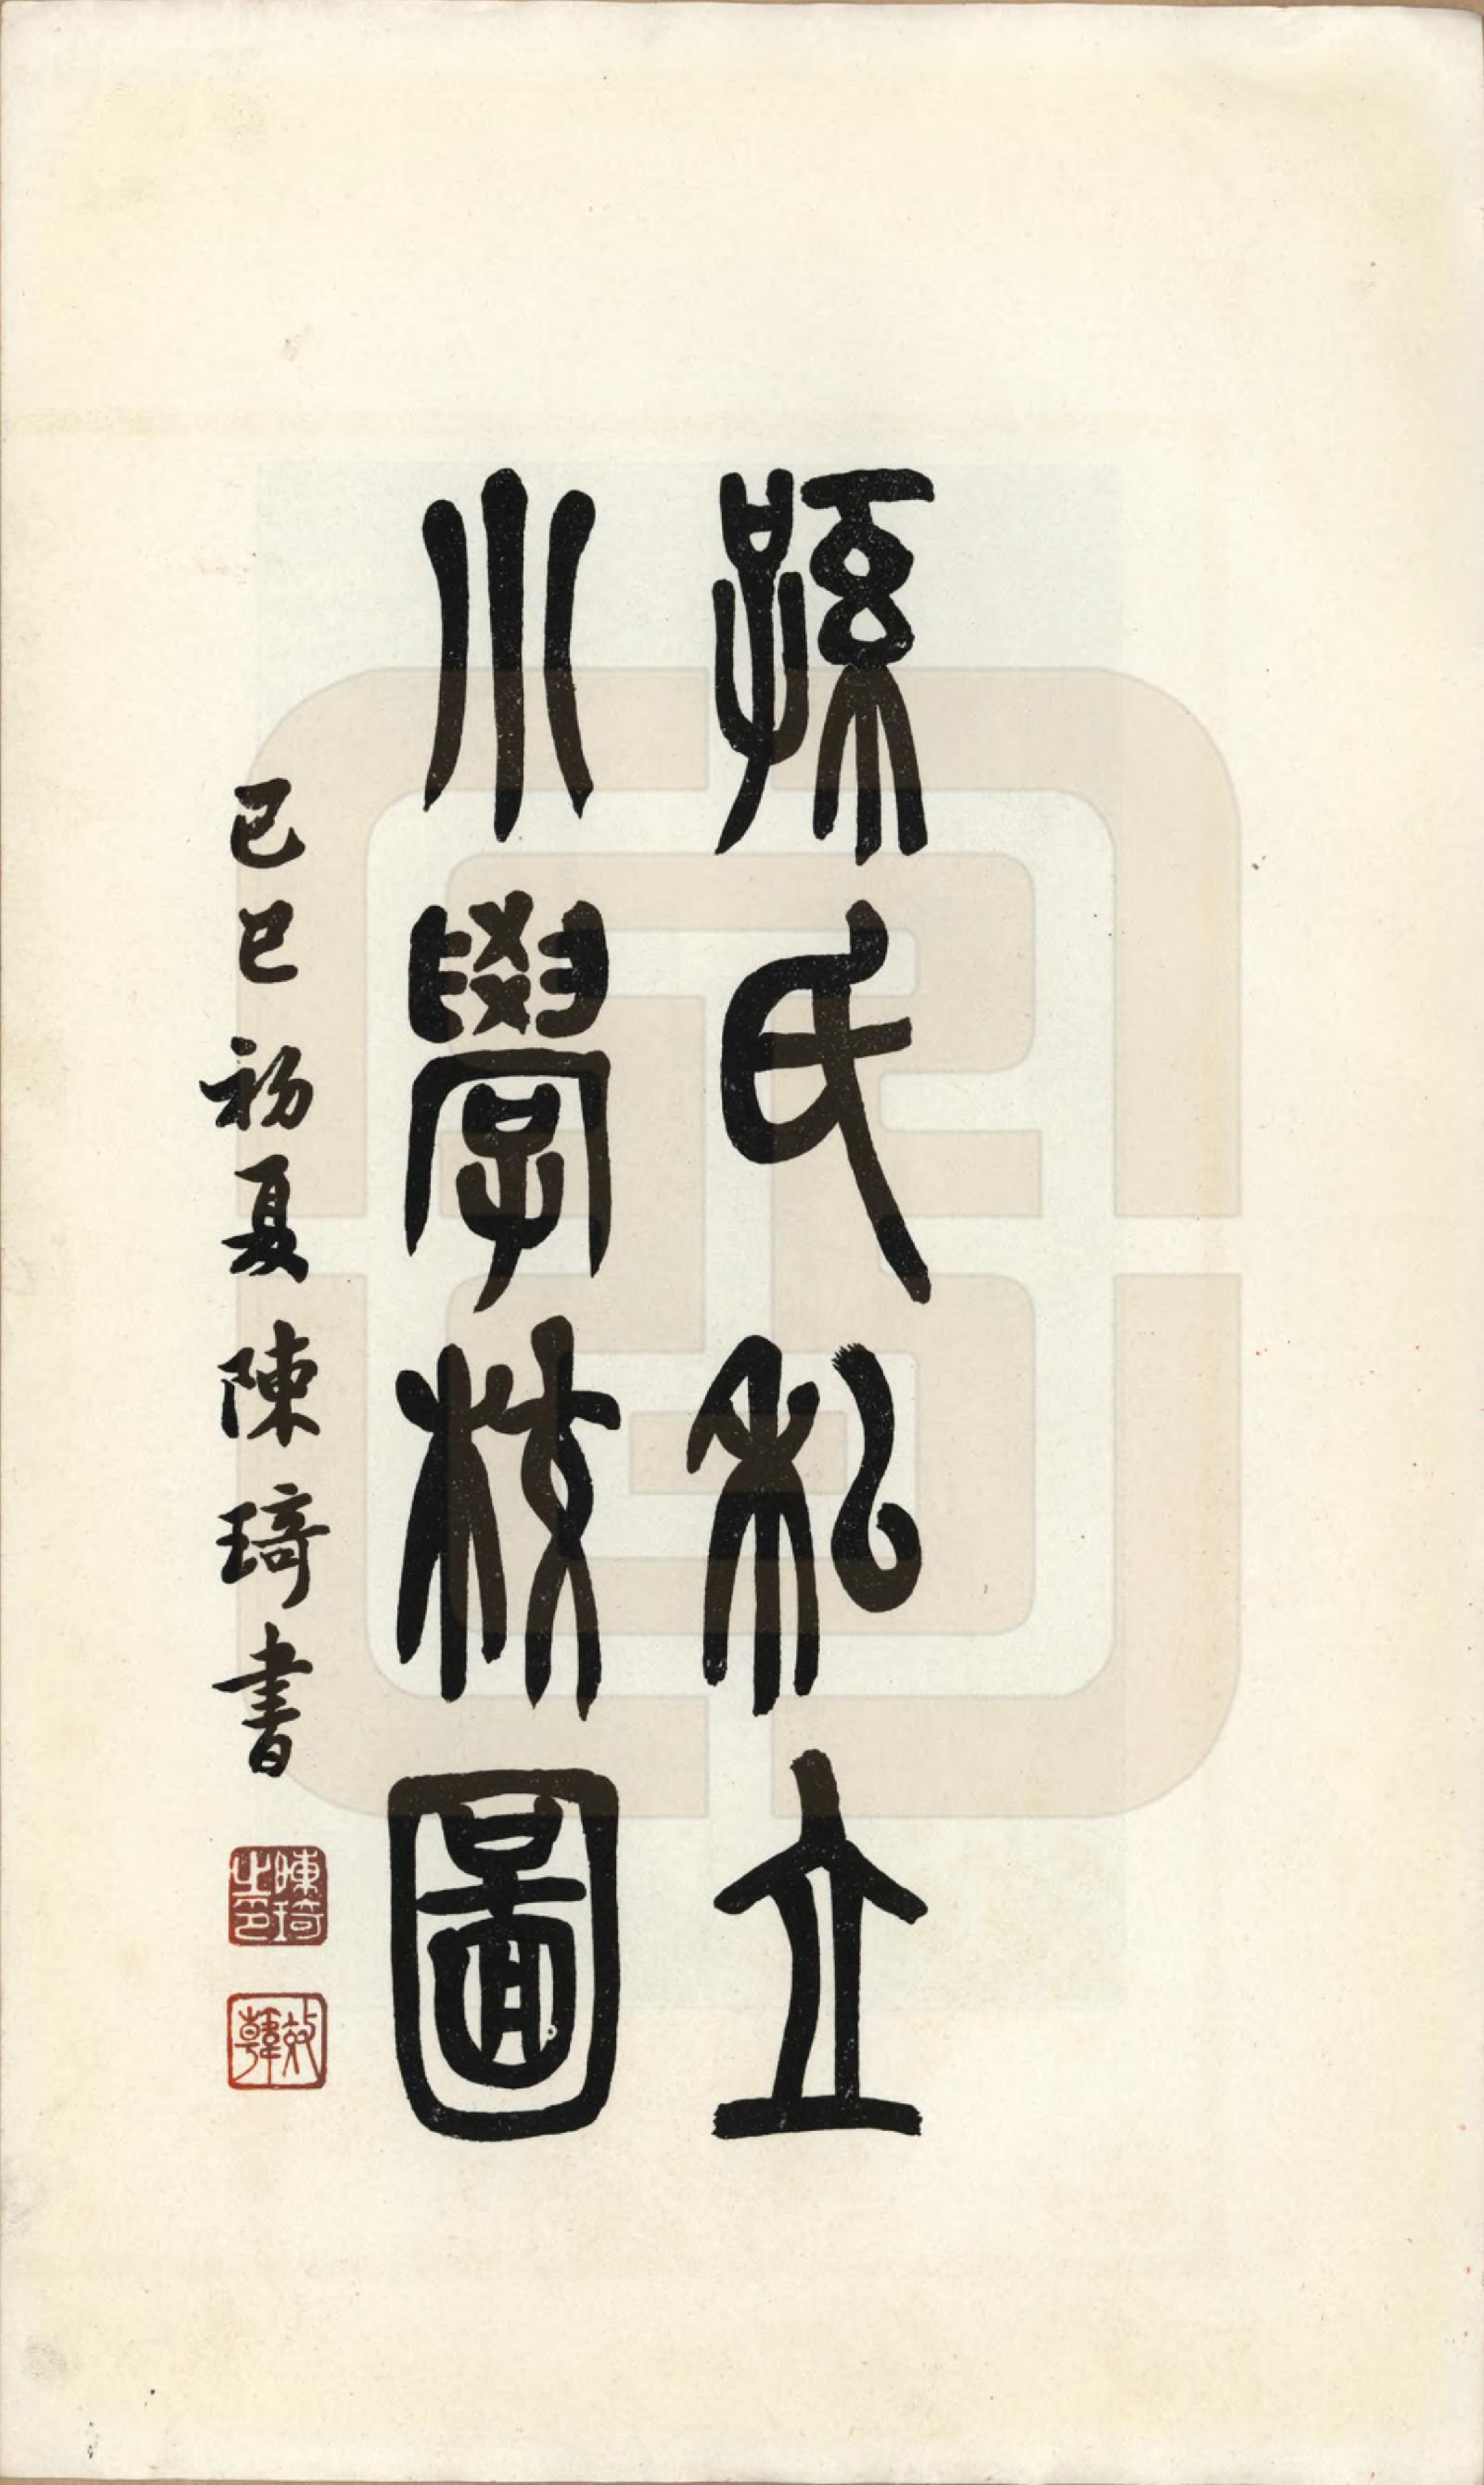 孫氏私立
小學校圖
己巳初夏陳琦書
陳琦之印